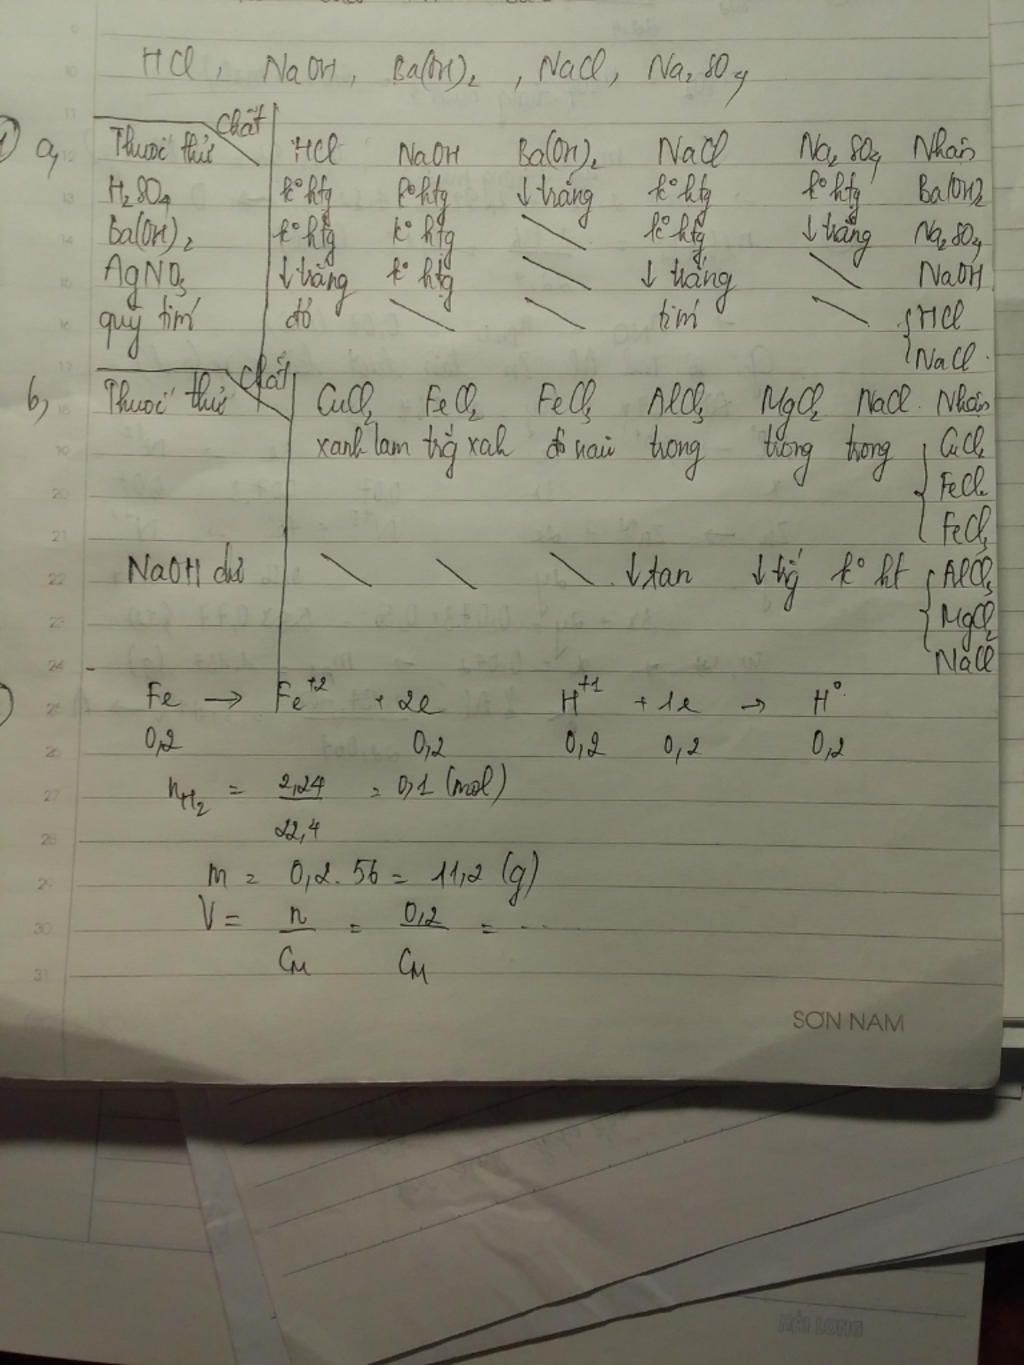 HCl, NaOH, Ba(OH)₂, NaCl, Na₂SO₄
1 a, Thuốc thử Chất HCl NaOH Ba(OH)₂ NaCl Na₂SO₄ Nhận
H₂SO₄ k° htg k° htg ↓ trắng k° htg k° htg Ba(OH)₂
Ba(OH)₂ k° htg k° htg \ k° htg ↓ trắng Na₂SO₄
AgNO₃ ↓ trắng k° htg \ ↓ trắng \ NaOH
quỳ tím đỏ \ \ tím \ { HCl
NaCl.
b, Thuốc thử Chất CuCl₂ FeCl₂ FeCl₃ AlCl₃ MgCl₂ NaCl Nhận
xanh lam trắg xah đỏ nâu trong trong trong { CuCl₂
FeCl₂
FeCl₃
NaOH dư \ \ \ ↓ tan ↓ trắg k° ht { AlCl₃
MgCl₂
NaCl
Fe → Fe⁺² + 2e H⁺¹ + 1e → H°
0,2 0,2 0,2 0,2 0,2
nH₂ = 2,24 = 0,1 (mol)
22,4
m = 0,2 . 56 = 11,2 (g)
V = n = 0,2 = ...
CM CM
SƠN NAM
HẢI LONG